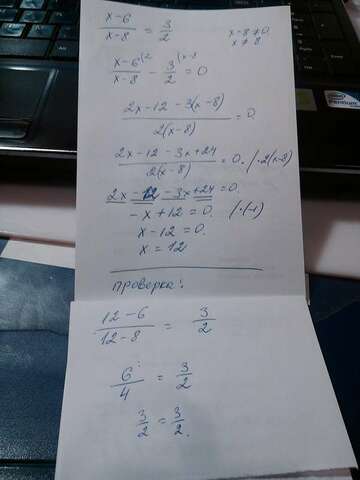 x-6/x-8 = 3/2    x-8≠0
x≠8
x-6(2/x-8 - 3(x-8/2 = 0
2x-12-3(x-8)/2(x-8) = 0
2x-12-3x+24/2(x-8) = 0. /·2(x-8)
2x-12-3x+24=0.
-x+12=0. /·(-1)
x-12=0.
x=12
проверка:
12-6/12-8 = 3/2
6/4 = 3/2
3/2 = 3/2.
intel
Pentium